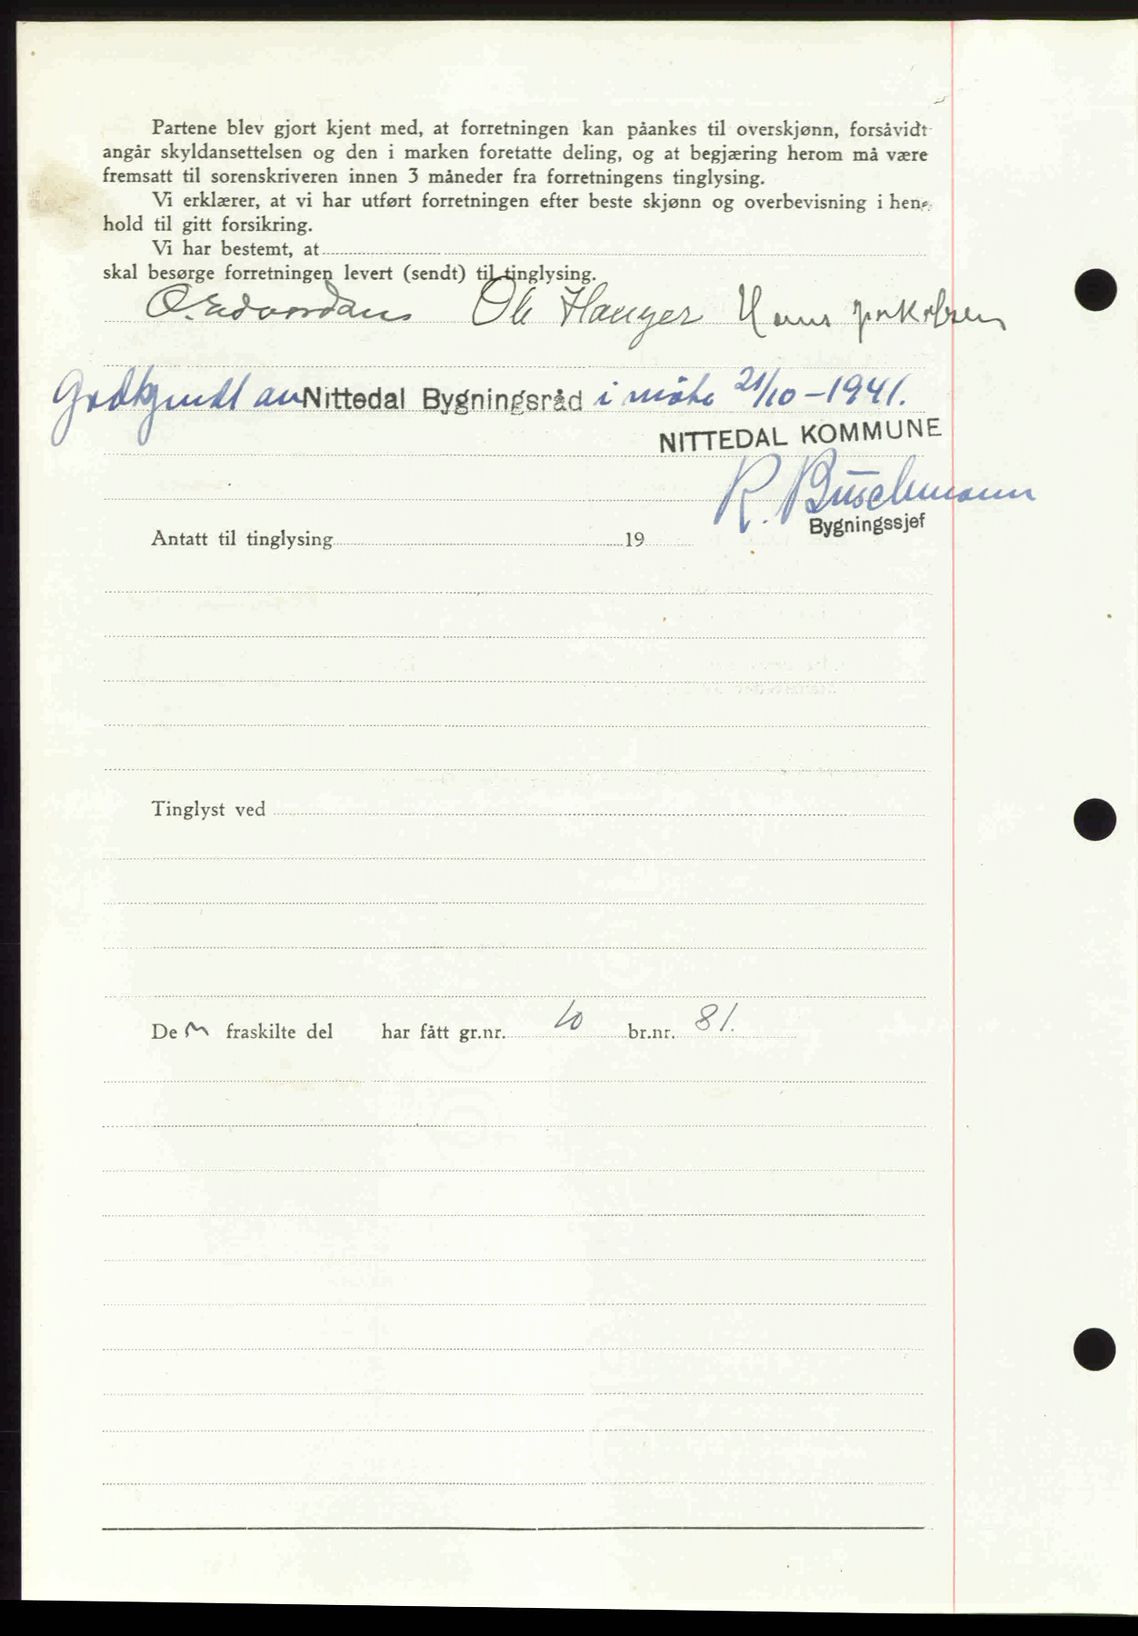 Partene blev gjort kjent med, at forretningen kan påankes til overskjønn, forsåvidt
angår skyldansettelsen og den i marken foretatte deling, og at begjæring herom må være
fremsatt til sorenskriveren innen 3 måneder fra forretningens tinglysing.
Vi erklærer, at vi har utført forretningen efter beste skjønn og overbevisning i hen-
hold til gitt forsikring.
Vi har bestemt, at
skal besørge forretningen levert (sendt) til tinglysing.
O. Edvardsen Ole Hauger Hans Jakobsen
Godkjendt av Nittedal Bygningsråd i möte 21/10-1941.
NITTEDAL KOMMUNE
R. Buschmann
Bygningssjef
Antatt til tinglysing 19
Tinglyst ved
De n fraskilte del har fått gr.nr. 10 br.nr. 81.